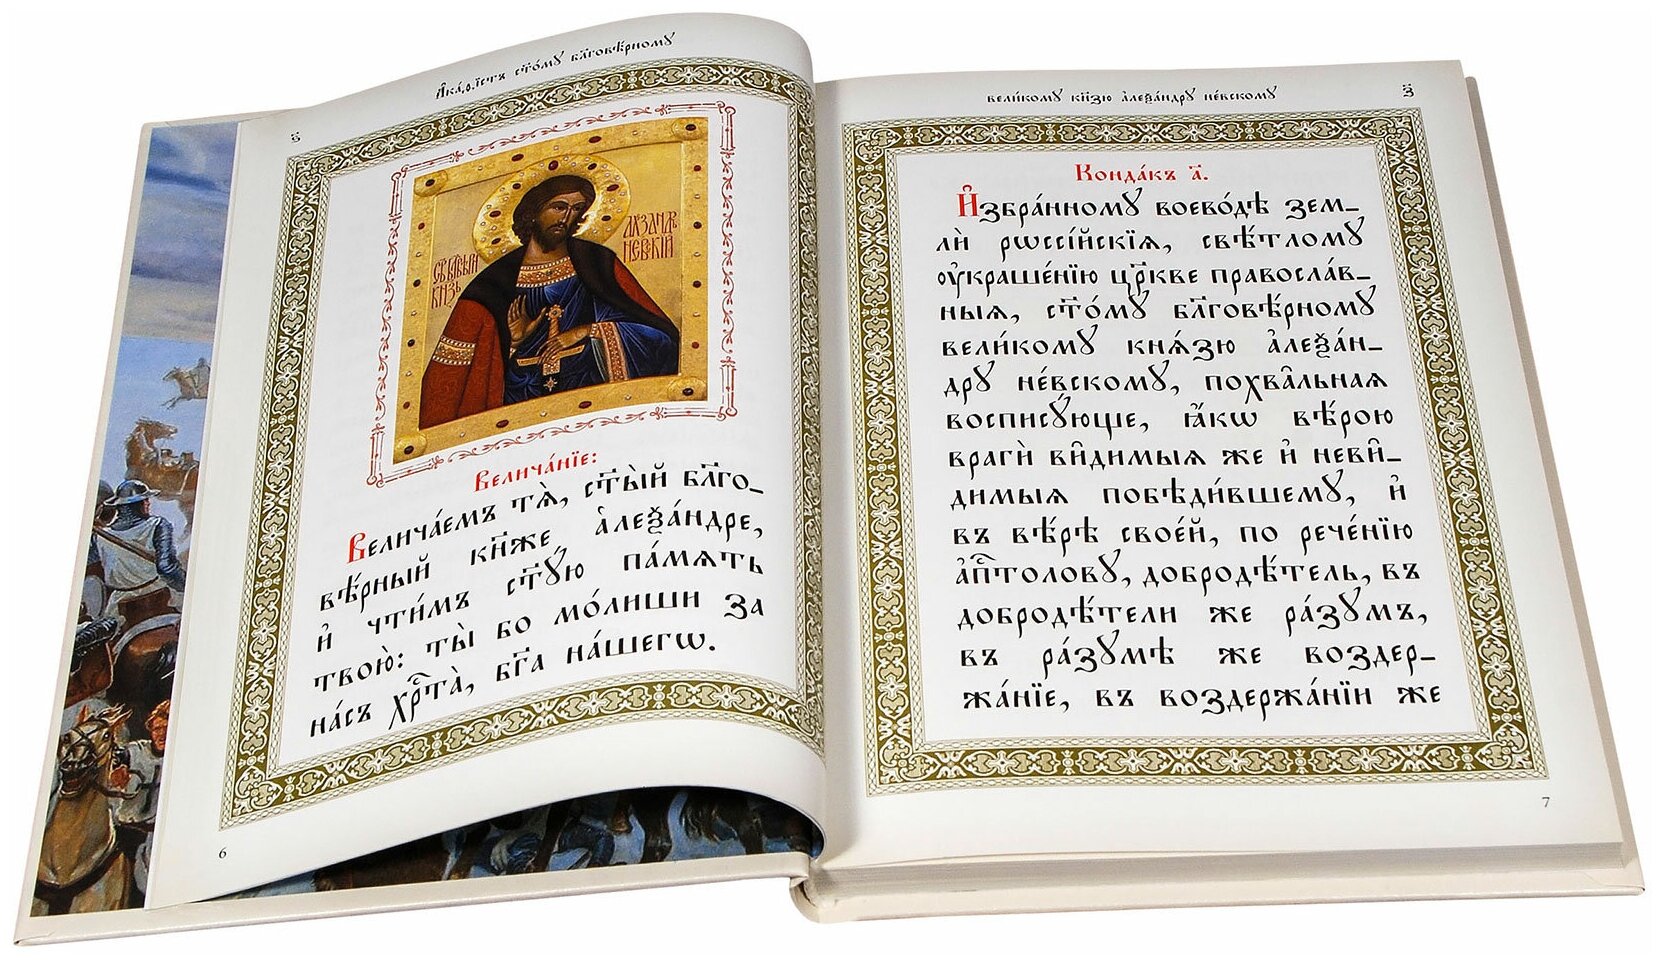 А҆ка́ѳїстъ ст҃о́мꙋ бл҃говѣ́рномꙋ
ѕ҃
СВ БЛ҃ГВѢРНЫЙ
КНЯЗЬ
АЛЕѮАНДРЪ
НЕВСКІЙ
Велича́нїе:
Велича́емъ тѧ̀, ст҃ы́й бл҃го_
вѣ́рный кн҃же а҆леѯа́ндре,
и҆ чти́мъ ст҃ꙋ́ю па́мѧть
твою̀: ты́ бо мо́лиши за
на́съ хрⷭ҇та̀, бг҃а на́шегѡ.
6
вели́комꙋ кн҃зю а҆леѯа́ндрꙋ не́вскомꙋ
з҃
Конда́къ а҃.
И҆збра́нномꙋ воево́дѣ зем_
лѝ рѡссі́йскїѧ, свѣ́тломꙋ
ᲂу҆краше́нїю цр҃кве правосла́в_
ныѧ, ст҃о́мꙋ бл҃говѣ́рномꙋ
вели́комꙋ кнѧ́зю а҆леѯа́н_
дрꙋ не́вскомꙋ, похва̑льная
восписꙋ́юще, ꙗ҆́кѡ вѣ́рою
врагѝ ви̑димыѧ же и҆ неви̑_
димыѧ побѣди́вшемꙋ, и҆
въ вѣ́рѣ свое́й, по рече́нїю
а҆пⷭ҇толовꙋ, добродѣ́тель, въ
добродѣ́тели же ра́зꙋмъ,
въ ра́зꙋмѣ же воздер_
жа́нїе, въ воздержа́нїи же
7